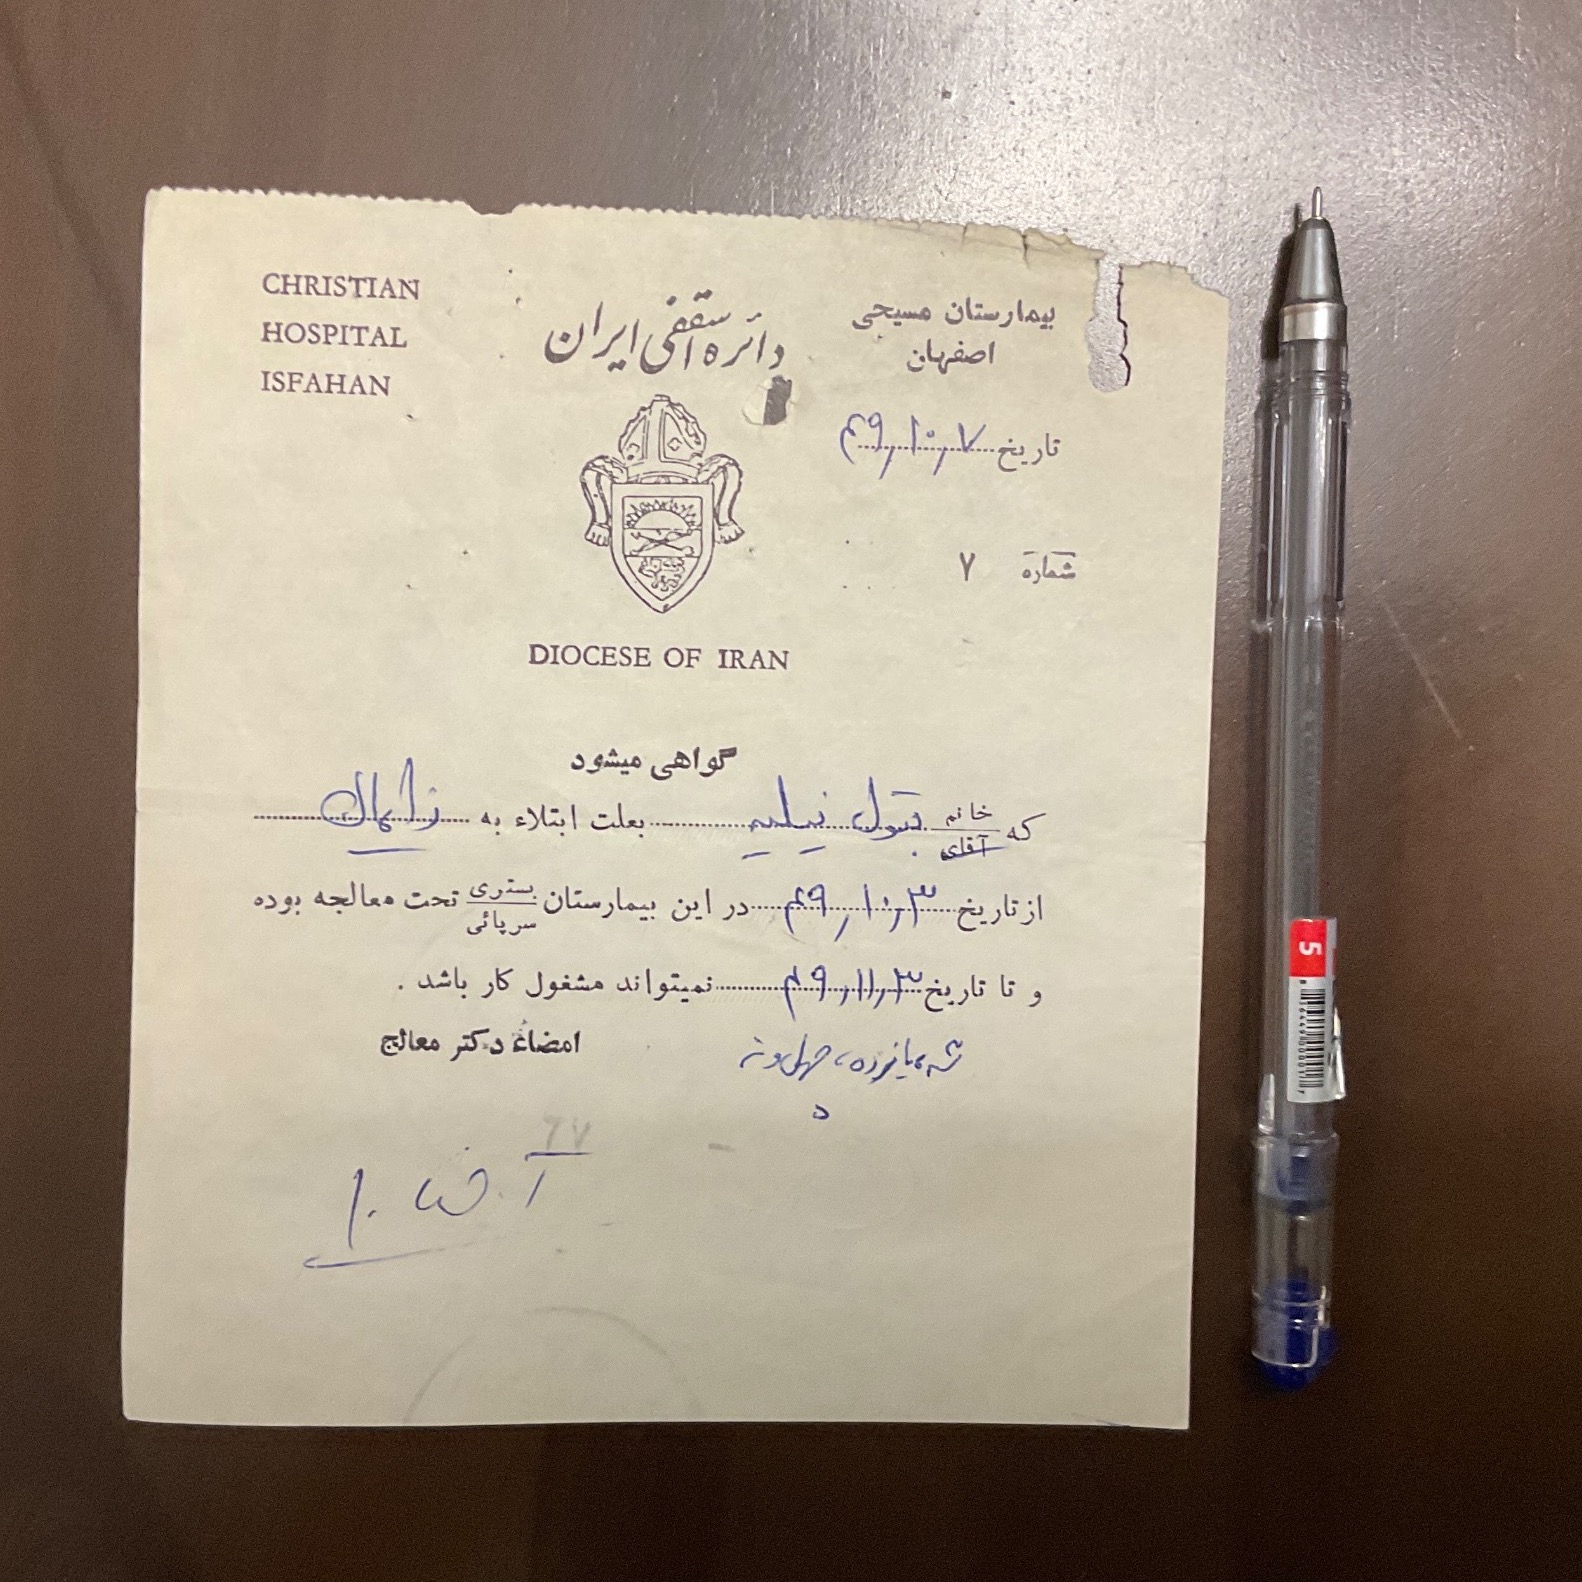 CHRISTIAN
HOSPITAL
ISFAHAN
دائره اسقفی ایران
بیمارستان مسیحی
اصفهان
تاریخ ۴۹,۱۰,۷
شماره ۷
DIOCESE OF IRAN
گواهی میشود
که خانم آقای بتول نیلیه بعلت ابتلاء به زایمان
از تاریخ ۴۹,۱۰,۳ در این بیمارستان بستری سرپائی تحت معالجه بوده
و تا تاریخ ۴۹,۱۱,۳ نمیتواند مشغول کار باشد .
یازده، چهل و نه
امضاء دکتر معالج
5